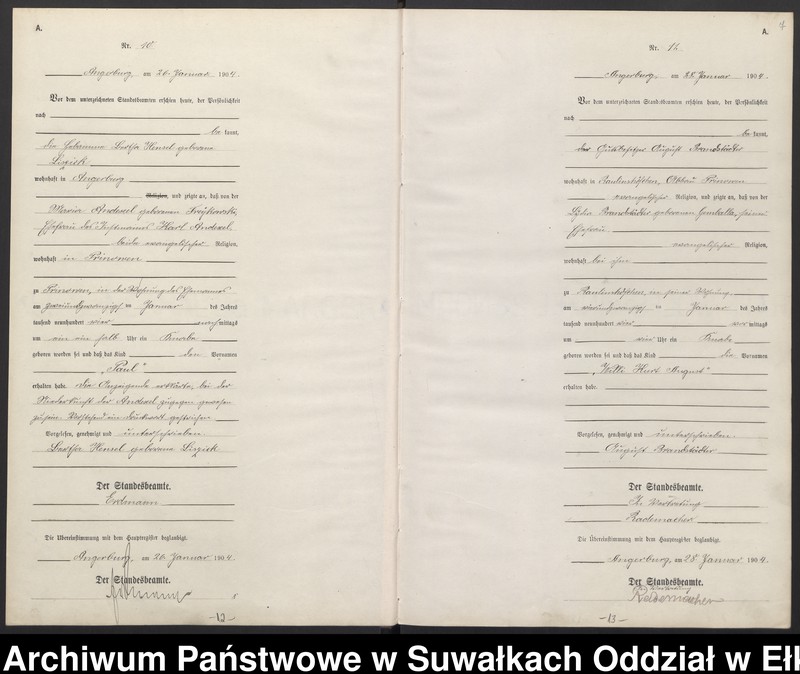 A.
Nr. 10
Angerburg am 26. Januar 1904.
Vor dem unterzeichneten Standesbeamten erschien heute, der Persönlichkeit
nach
be kannt,
die Hebamme Bertha Hensel geborene
wohnhaft in Angerburg
Religion, und zeigte an, daß von der
Maria Andexel geborenen
Ehefrau des Karl Andexel
beide evangelischer Religion,
wohnhaft in Prinowen
zu Prinowen, in der Wohnung des Ehemannes
am zweiundzwanzigsten Januar des Jahres
tausend neunhundert vier nachmittags
um ein ein halb Uhr ein Knabe
geboren worden sei und daß das Kind den Vornamen
„Paul“
erhalten habe. Die Anzeigende erklärte, bei der
Niederkunft der Andexel zugegen gewesen
zu sein. Vorstehend ein Druckwort gestrichen
Vorgelesen, genehmigt und unterschrieben
Bertha Hensel geborene
Der Standesbeamte.
Erdmann
Die Übereinstimmung mit dem Hauptregister beglaubigt.
Angerburg, am 26. Januar 1904.
Der Standesbeamte.
Erdmann
-12-
7
A.
Nr. 12
Angerburg, am 28. Januar 1904.
Vor dem unterzeichneten Standesbeamten erschien heute, der Persönlichkeit
nach
be kannt,
der Gutsbesitzer August Brandstädter
wohnhaft in Paulinenhöfchen, Abbau Prinowen
evangelischer Religion, und zeigte an, daß von der
Lydia Brandstädter geborenen Gemballa, seiner
Ehefrau
evangelischer Religion,
wohnhaft bei ihm
zu Paulinenhöfchen, in seiner Wohnung
am vierundzwanzigsten Januar des Jahres
tausend neunhundert vier vormittags
um vier Uhr ein Knabe
geboren worden sei und daß das Kind die Vornamen
„Willi Kurt August“
erhalten habe.
Vorgelesen, genehmigt und unterschrieben
August Brandstädter
Der Standesbeamte.
In Vertretung
Rademacher
Die Übereinstimmung mit dem Hauptregister beglaubigt.
Angerburg, am 28. Januar 1904.
Der Standesbeamte.
In Vertretung
Rademacher
-13-
Archiwum Państwowe w Suwałkach Oddział w Ełk